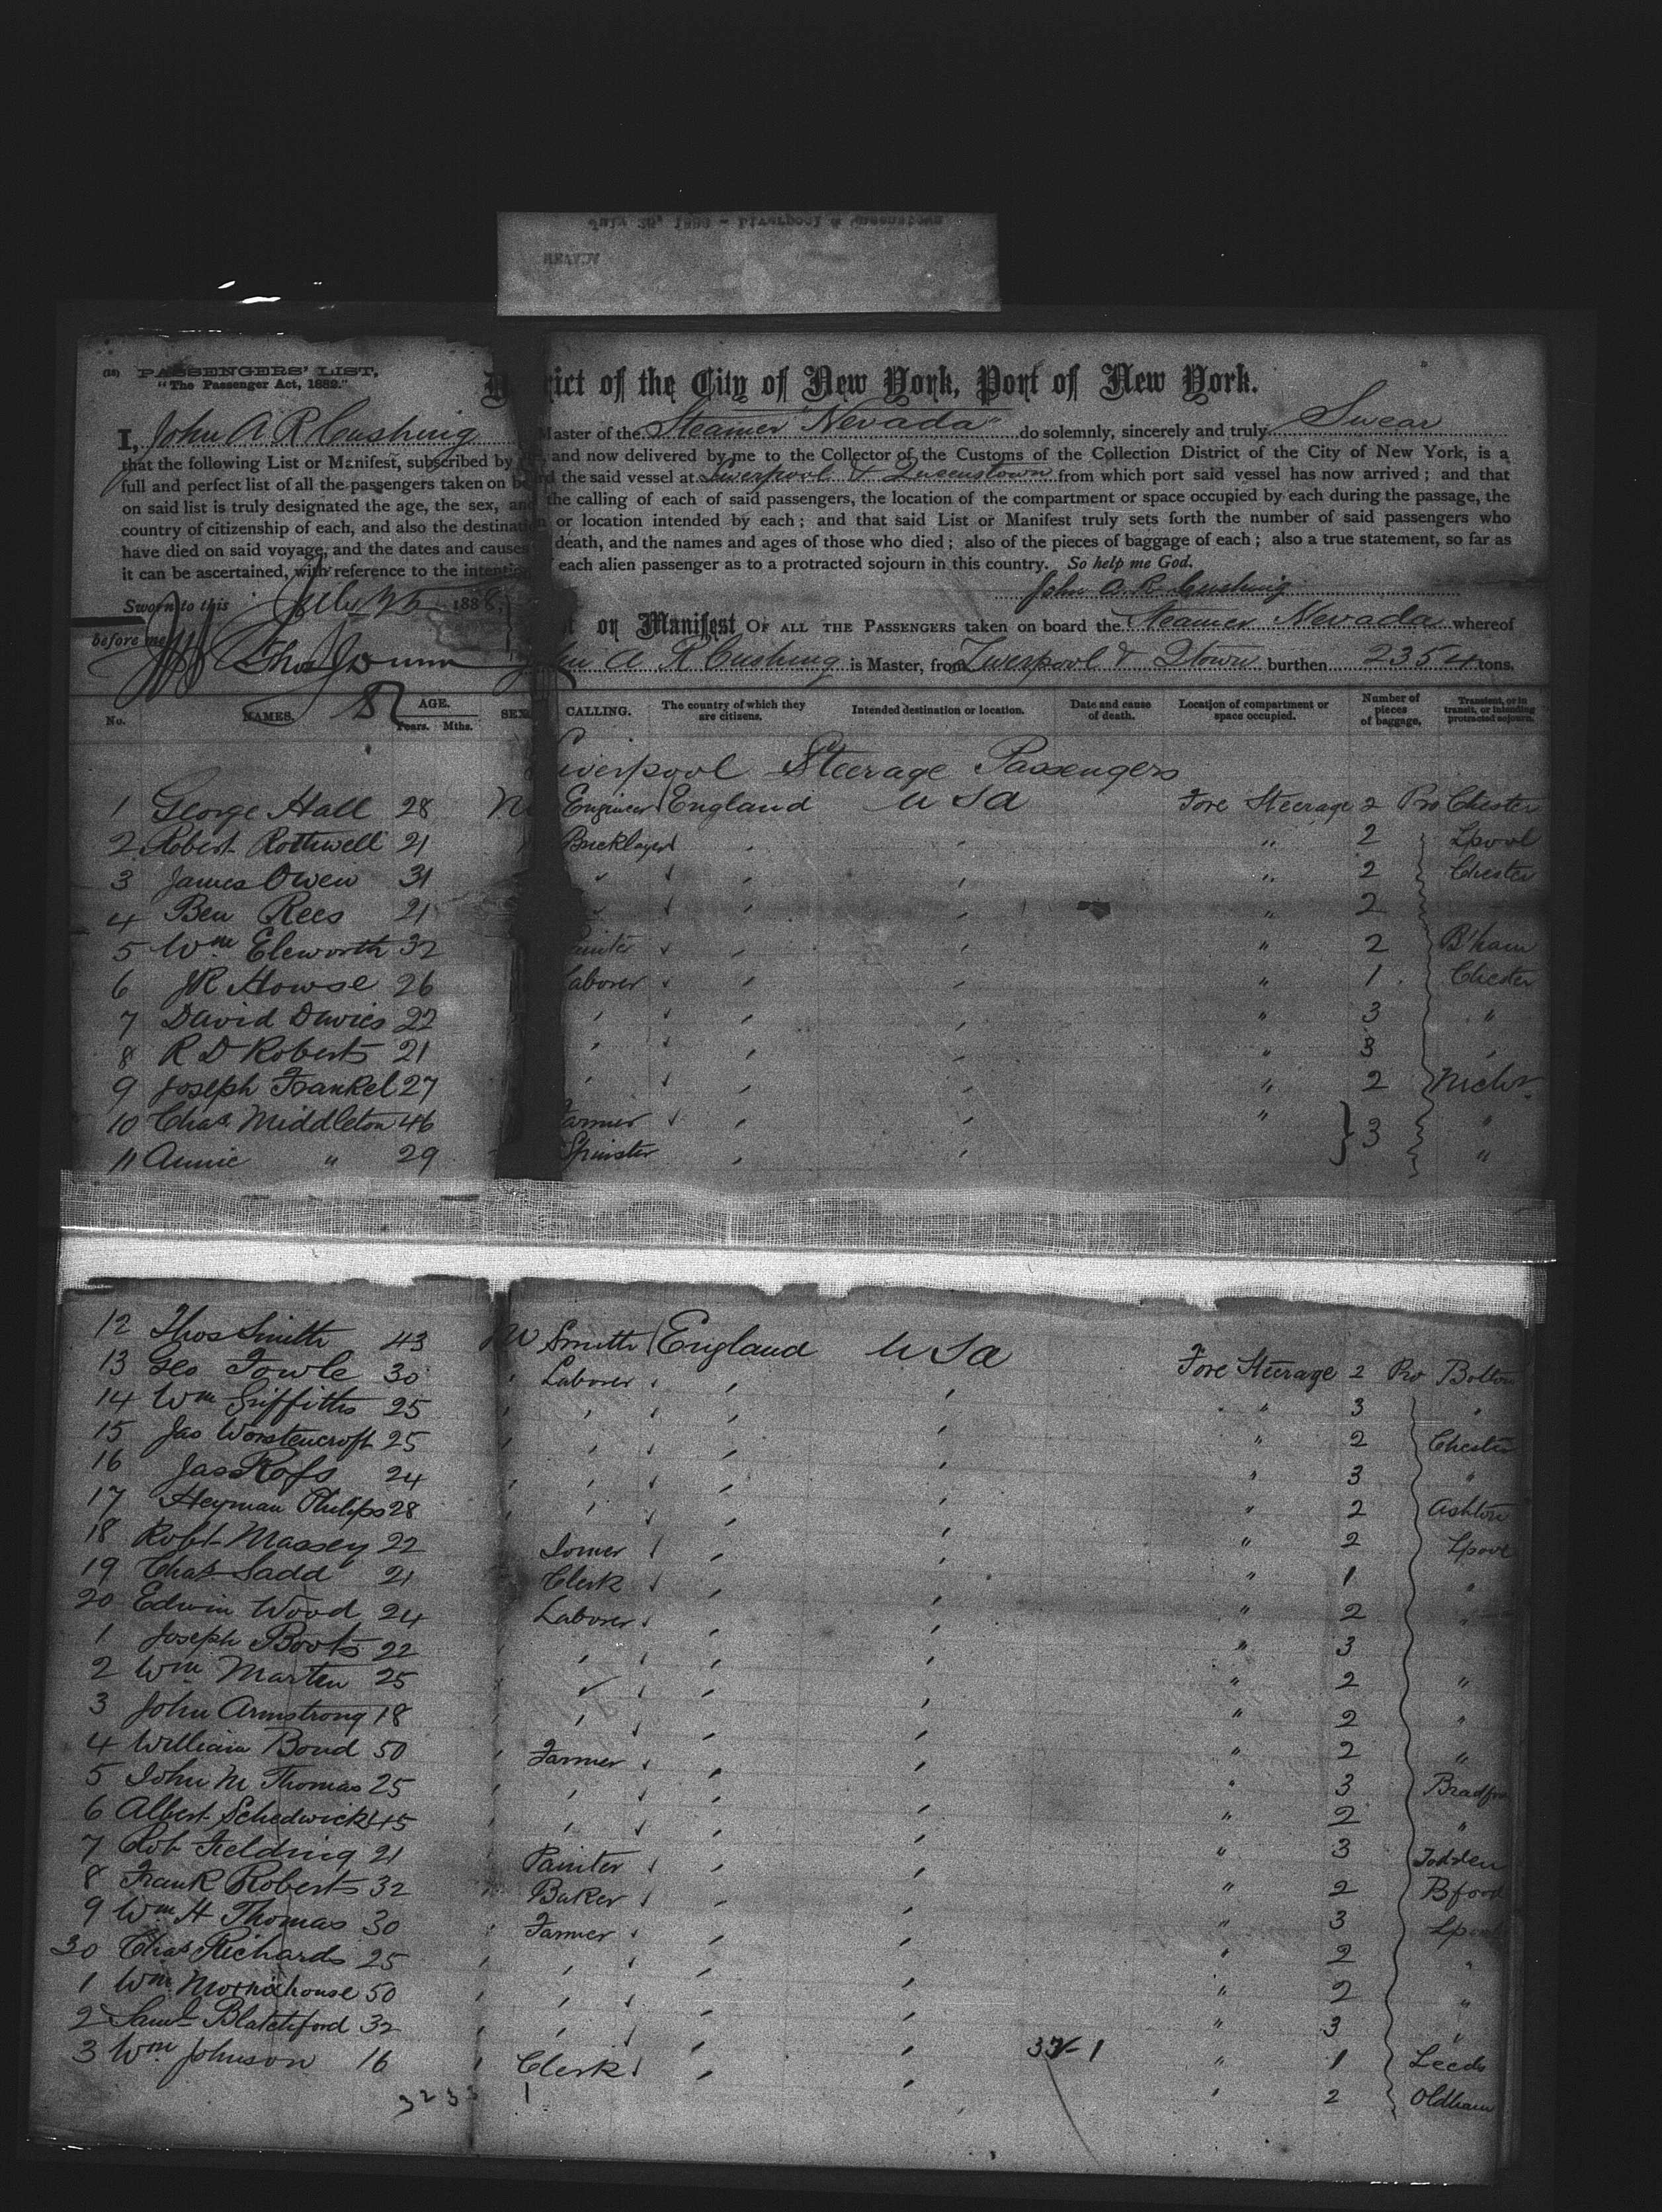 (18) PASSENGERS' LIST.
"The Passenger Act, 1882."
District of the City of New York, Port of New York.
I, John A R Cushing Master of the Steamer "Nevada" do solemnly, sincerely and truly Swear
that the following List or Manifest, subscribed by and now delivered by me to the Collector of the Customs of the Collection District of the City of New York, is a
full and perfect list of all the passengers taken on board the said vessel at Liverpool & Queenstown from which port said vessel has now arrived; and that
on said list is truly designated the age, the sex, and the calling of each of said passengers, the location of the compartment or space occupied by each during the passage, the
country of citizenship of each, and also the destination or location intended by each; and that said List or Manifest truly sets forth the number of said passengers who
have died on said voyage, and the dates and causes death, and the names and ages of those who died; also of the pieces of baggage of each; also a true statement, so far as
it can be ascertained, with reference to the intention each alien passenger as to a protracted sojourn in this country. So help me God.
John A. R. Cushing
Sworn to this July 25 1888,
before me
Thos J Dunn
or Manifest OF ALL THE PASSENGERS taken on board the Steamer Nevada whereof
John A R Cushing is Master, from Liverpool & Qtown burthen 2354 tons.
No. NAMES. AGE. Years. Mths. SEX CALLING. The country of which they are citizens. Intended destination or location. Date and cause of death. Location of compartment or space occupied. Number of pieces of baggage. Transient, or in transit, or intending protracted sojourn.
Liverpool Steerage Passengers
1 George Hall 28 Engineer England U S A Fore Steerage 2 Pro Chester
2 Robert Rothwell 21 Bricklayer " 2 Lpool
3 James Owen 31 " 2 Chester
4 Ben Rees 21 " 2
5 Wm Eleworth 32 Painter " 2 B'ham
6 JR Howse 26 Laborer " 1 Chester
7 David Davies 22 " 3 "
8 R D Roberts 21 " 3 "
9 Joseph Frankel 27 " 2 Mchr
10 Chas Middleton 46 Farmer " } 3 "
11 Annie " 29 Spinster "
12 Thos Smith 43 M Smith England U S A Fore Steerage 2 Pro Bolton
13 Geo Fowle 30 Laborer " 3 "
14 Wm Griffiths 25 " 2 Chester
15 Jas Worstencroft 25 " 3 "
16 Jas Ross 24 " 2 Ashton
17 Heyman Philips 28 " 2 Lpool
18 Robt Massey 22 Joiner " 1 "
19 Chas Sadd 21 Clerk " 2 "
20 Edwin Wood 24 Laborer " 3
1 Joseph Boots 22 " 2 "
2 Wm Marten 25 " 2 "
3 John Armstrong 18 " 2 "
4 William Bond 50 Farmer " 3 Bradfor
5 John M Thomas 25 " 2 "
6 Albert Schedwick 45 " 3 Todden
7 Rob Fielding 21 Painter " 2 Bford
8 Frank Roberts 32 Baker " 3 Lpool
9 Wm H Thomas 30 Farmer " 2 "
30 Chas Richards 25 " 2 "
1 Wm 50 " 3 "
2 Saml Blatchford 32 " 1 Leeds
3 Wm Johnson 16 Clerk " 2 Oldham
32 33 1